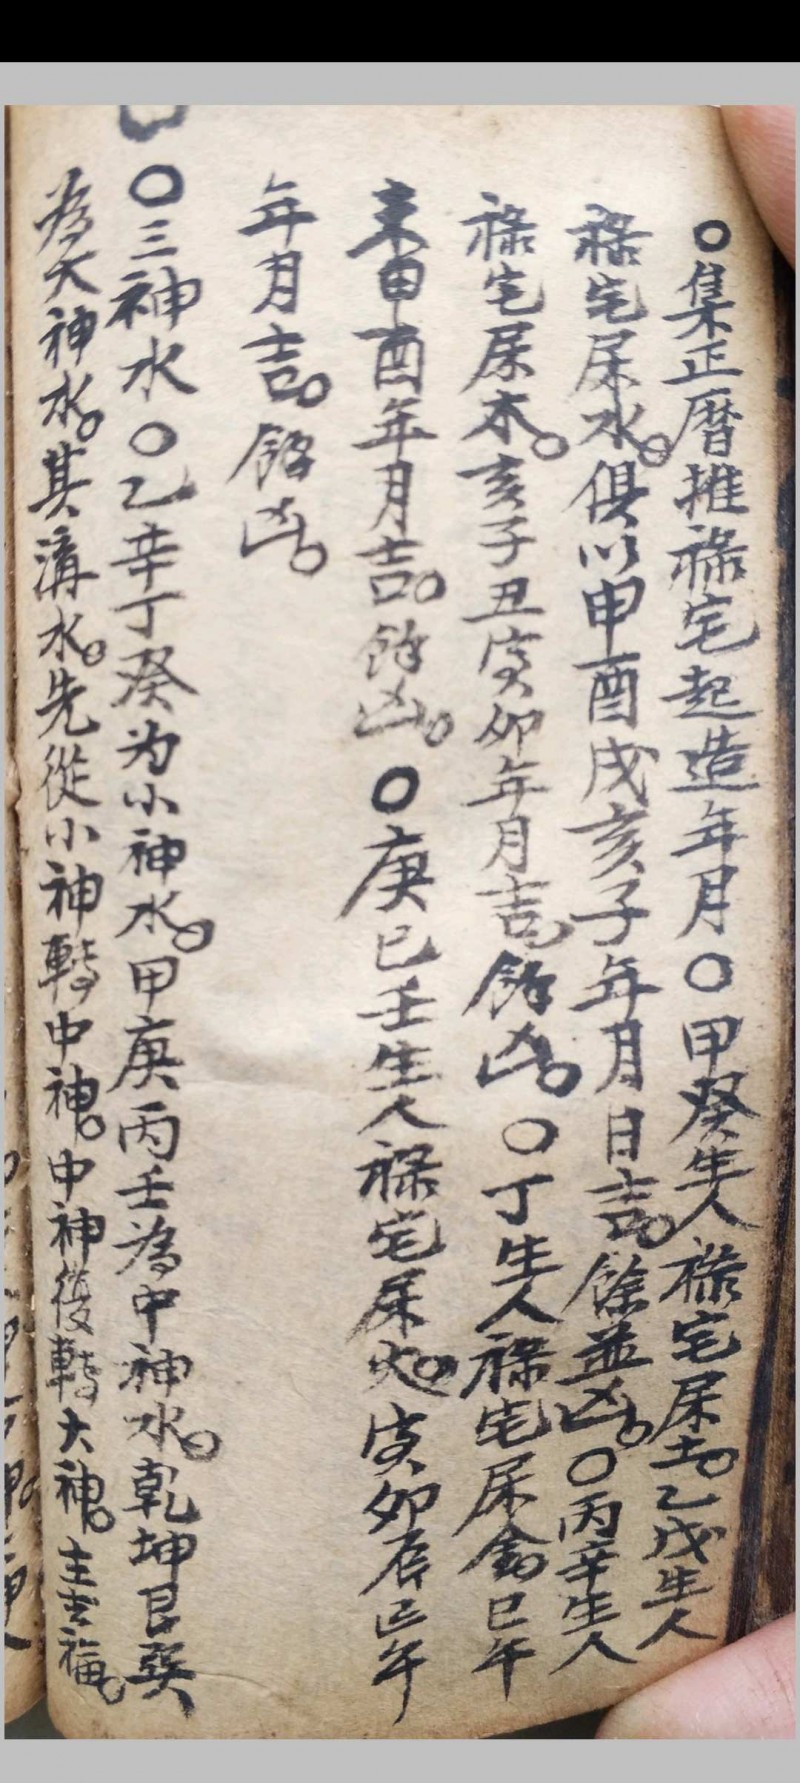 ○集正曆推祿宅起造年月○甲癸生人祿宅屎土。乙戊生人
祿宅屎水。俱以申酉戌亥子年月日吉。餘並凶。○丙辛生人
祿宅屎木。亥子丑寅卯年月吉。餘凶。○丁生人祿宅屎金巳午
未申酉年月吉。餘凶。○庚己壬生人祿宅屎火。寅卯辰巳午
年月吉。餘凶。
○三神水○乙辛丁癸为小神水。甲庚丙壬為中神水。乾坤艮巽
為大神水。其溝水。先從小神轉中神。中神復轉大神。主吉福。